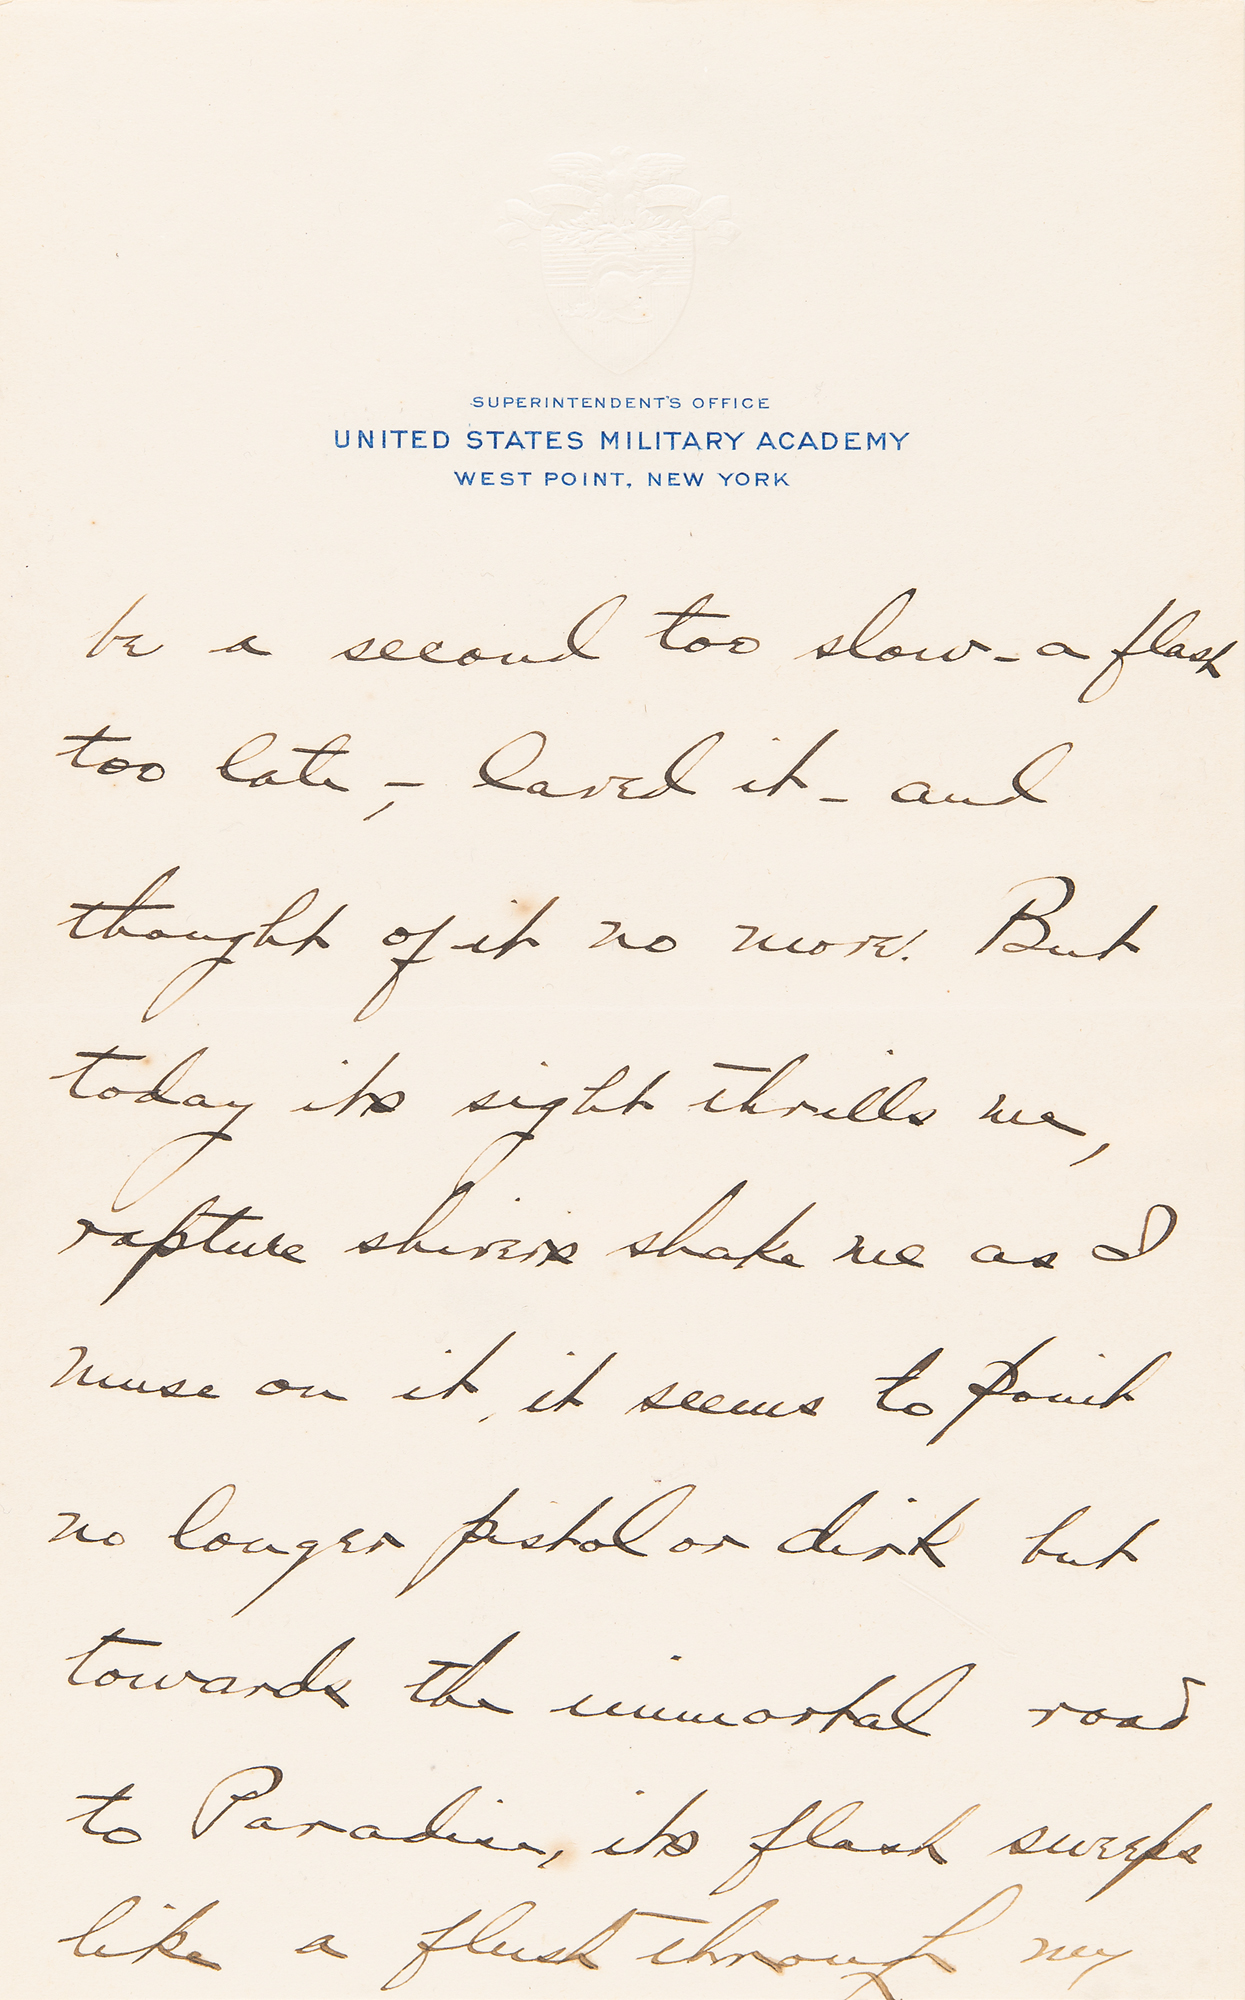 SUPERINTENDENT'S OFFICE
UNITED STATES MILITARY ACADEMY
WEST POINT, NEW YORK
be a second too slow - a flash
too late, - loved it - and
thought of it no more. But
today its sight thrills me,
rapture shivers shake me as I
muse on it, it seems to point
no longer pistol or dirk but
towards the immortal road
to Paradise, its flash sweeps
like a flush through my